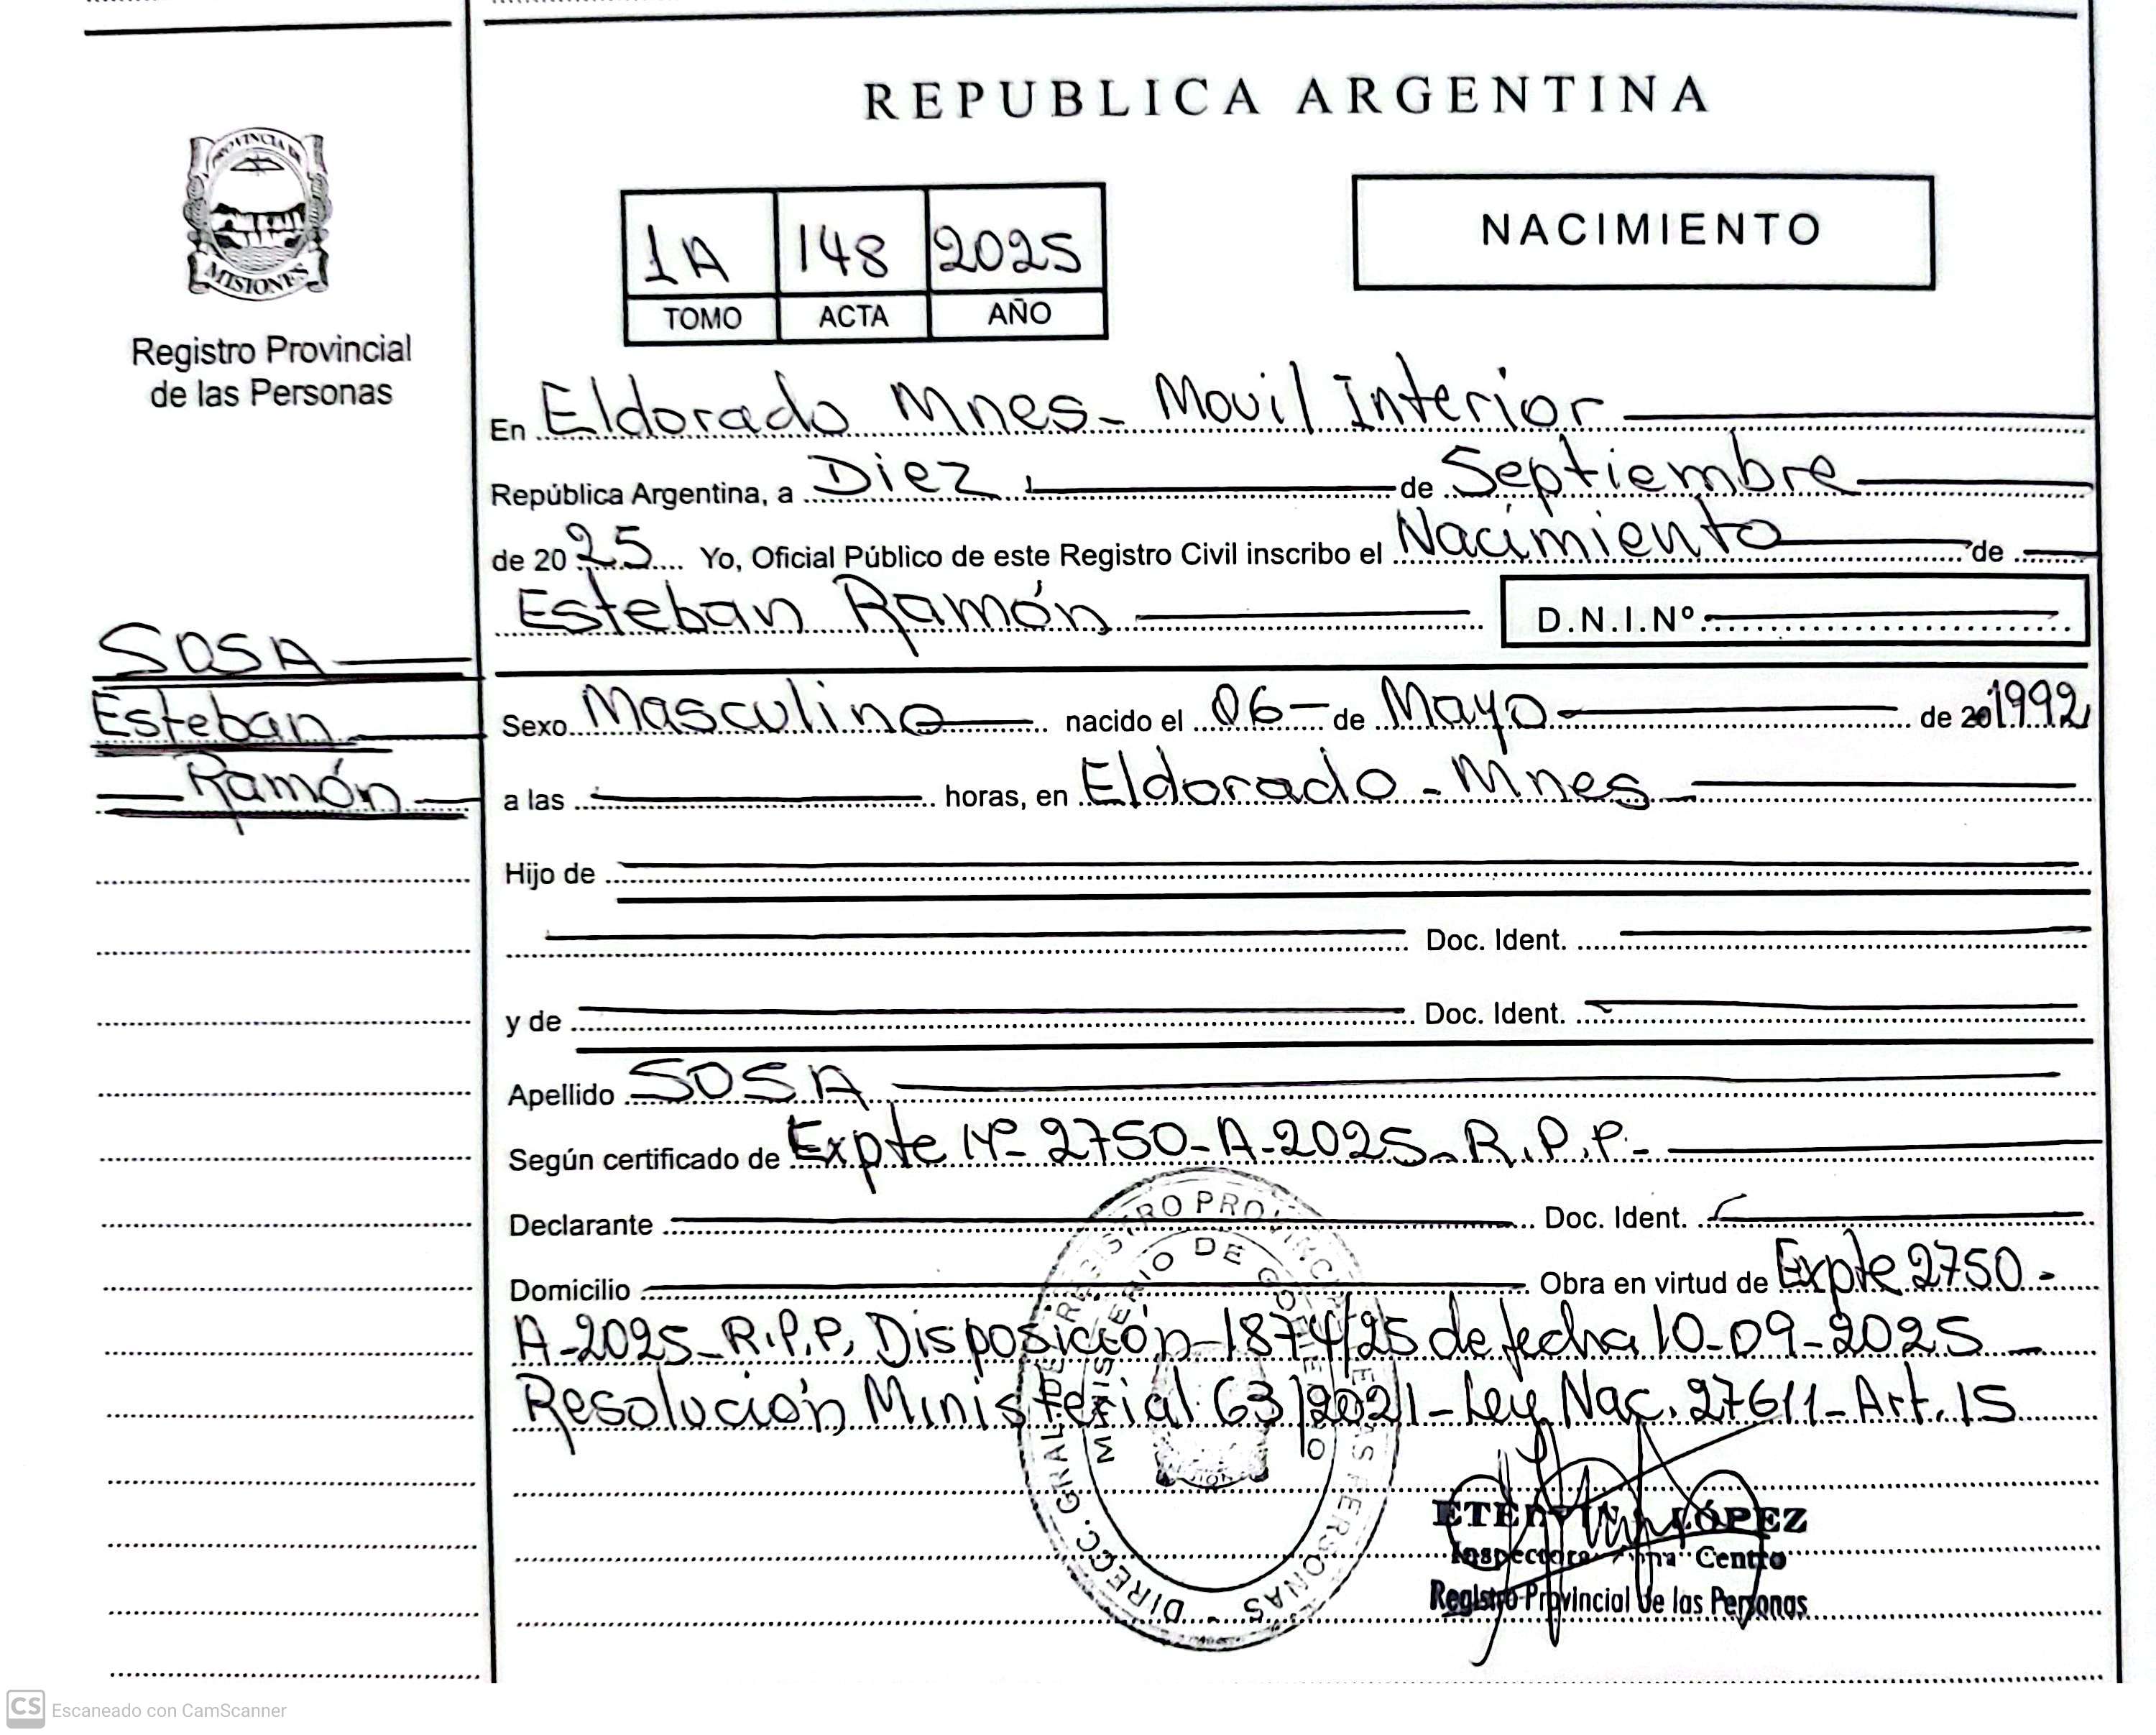 REPUBLICA ARGENTINA
PROVINCIA DE
MISIONES
Registro Provincial
de las Personas
1A 148 2025
TOMO ACTA AÑO
NACIMIENTO
En Eldorado Mnes- Movil Interior
República Argentina, a Diez de Septiembre
de 2025 Yo, Oficial Público de este Registro Civil inscribo el Nacimiento de
Esteban Ramón D.N.I.Nº
SOSA
Esteban
Ramón
Sexo Masculino nacido el 06 de Mayo de 20 1992
a las horas, en Eldorado - Mnes
Hijo de
Doc. Ident.
y de Doc. Ident.
Apellido SOSA
Según certificado de Expte Nº 2750-A-2025-R.P.P.-
Declarante Doc. Ident.
Domicilio Obra en virtud de Expte 2750-
A-2025-R.P.P. Disposición-1874/25 de fecha 10-09-2025
Resolución Ministerial 63/2021-Ley Nac. 27611-Art. 15
DIRECC. GRAL DE REGISTRO PROVINCIAL DE LAS PERSONAS
MINISTERIO DE GOBIERNO
LÓPEZ
Inspectora Centro
Registro Provincial de las Personas
CS Escaneado con CamScanner